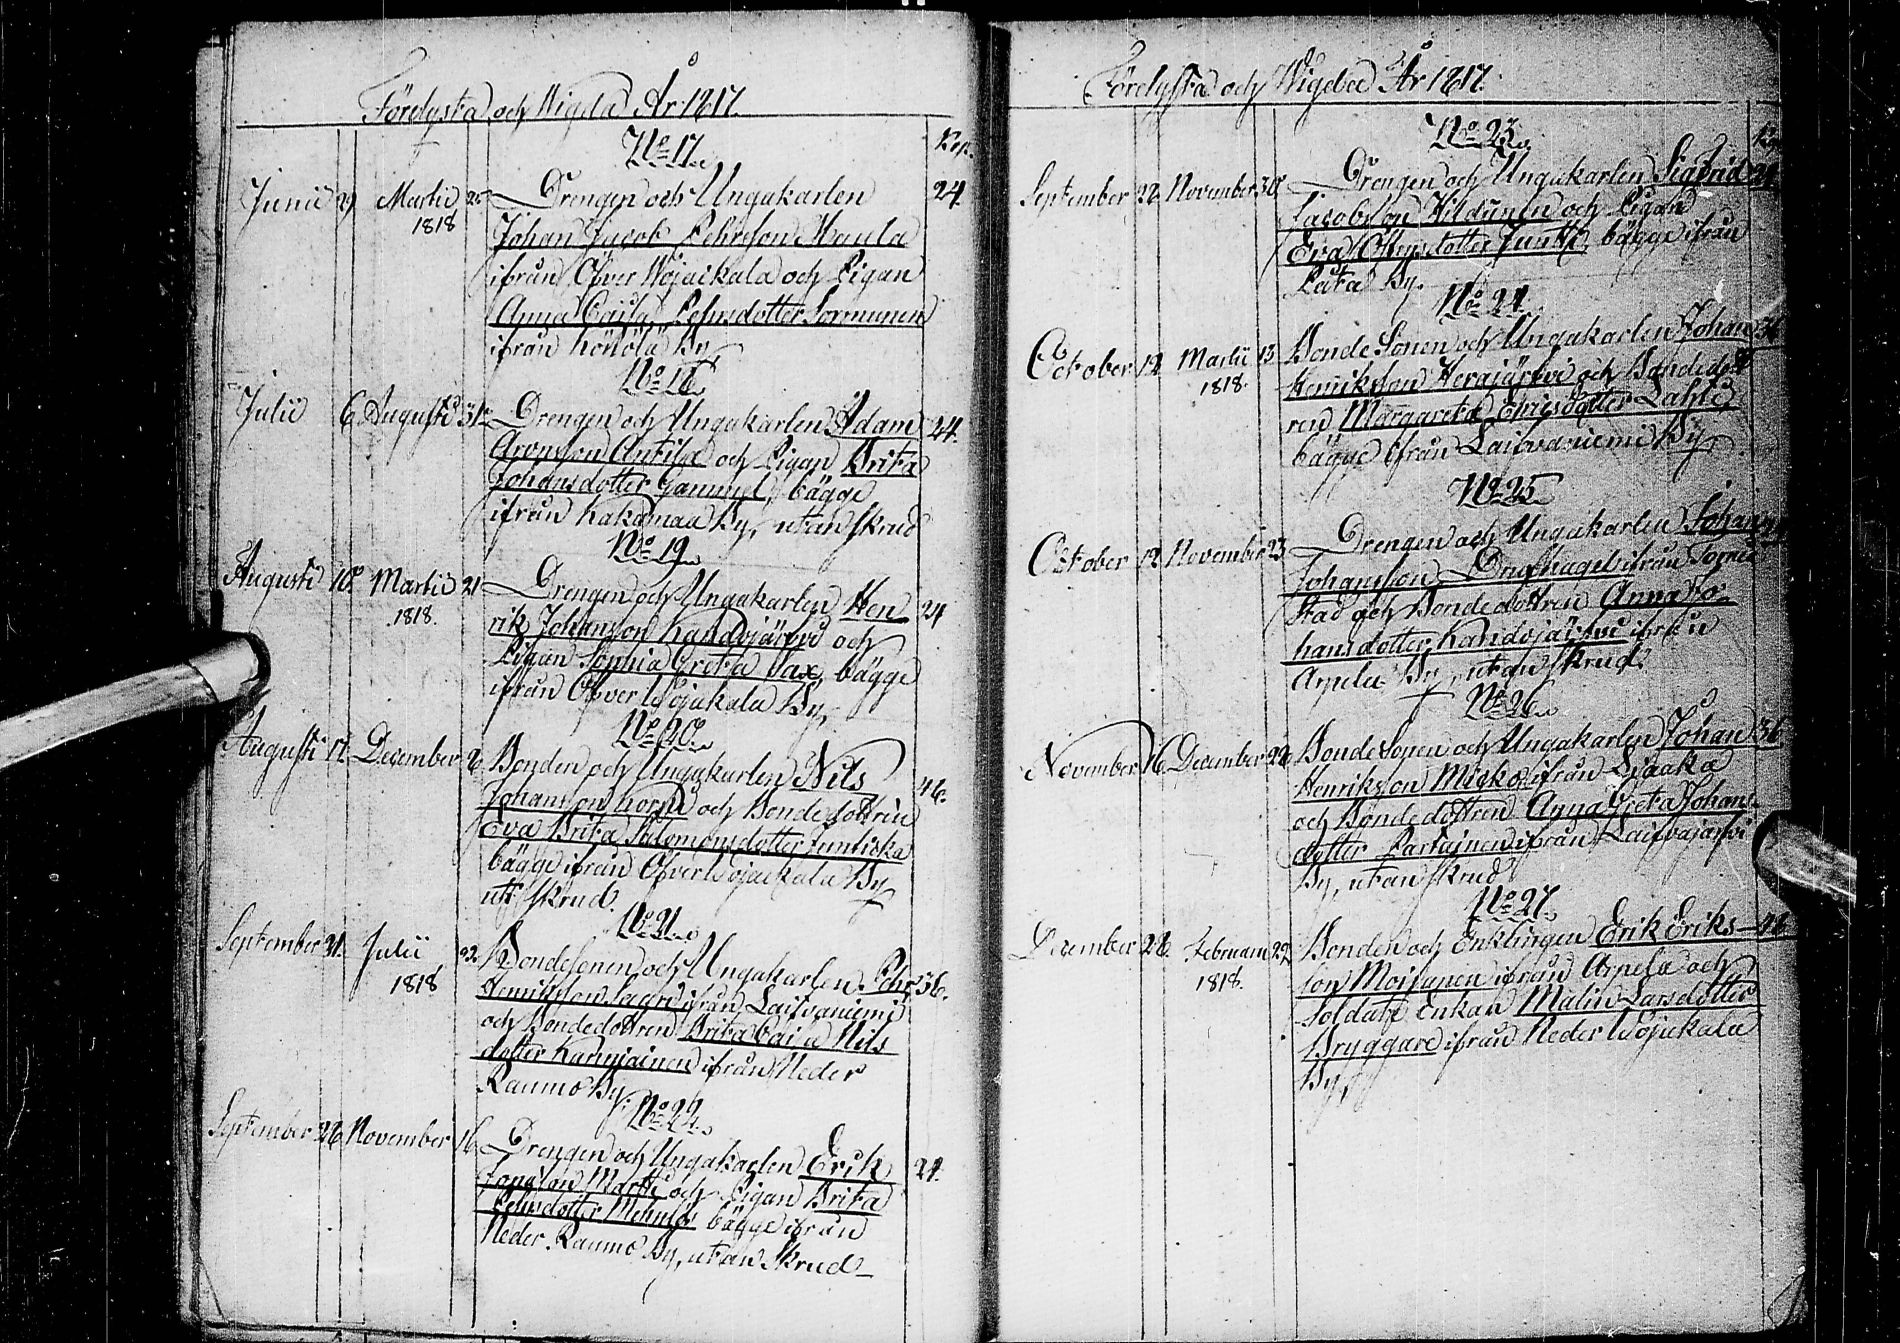 Förlysta och Wigda År 1817.
Kop.
No 17.
Junii 29 Martii 25 Drengen och Ungakarlen 24
1818 Johan Jacob Pehrsson Maula
ifrån Öfver Wojakala och Pigan
Anna Caisa Pehrsdotter Sormunen
ifrån By,
No 18.
Julii 6 Augusti 31 Drengen och Ungakarlen Adam 24.
Aronsson Antila och Pigan Brita
Johansdotter Gammel, bägge
ifrån Kakamaa By, utan skrud
No 19.
Augusti 10 Martii 21 Drengen och Ungakarlen Hen 24
1818. rik Johansson Kandojärvi och
Pigan Sophia Greta Sax, bägge
ifrån Öfver Wojakala By,
No 20.
Augusti 17. December 26 Bonden och Ungakarlen Nils 46.
Johansson Korpi och Bondedottren
Eva Brita Salomonsdotter Juntiska
bägge ifrån Öfver Wojakala By
ut. skrud.
No 21.
September 21. Julii 23. Bondesonen och Ungakarlen Pehr 36.
1818 Henriksson ifrån Laivaniemi
och Bondedottren Brita Caisa Nils
dotter ifrån Neder
Raumo By,
No 22.
September 26 November 16 Drengen och Ungakarlen Erik 24.
Martti och Pigan Brita
Pehrsdotter bägge ifrån
Neder Raumo By, utan Skrud
Förlysta och Wigde År 1817.
No 23.
September 22 November 30 Drengen och Ungakarlen Sigfrid 24
Jacobsson Hildunen och Pigan
Eva Junti bägge ifrån
By.
No 24.
October 12 Martii 13 Bonde Sonen och Ungakarlen Johan 36
1818. Henriksson Herajärvi och Bondedott
ren Margareta Lahti
bägge ifrån Laivaniemi By,
No 25
October 12 November 23 Drengen och Ungakarlen Johan
Johansson ifrån Torneå
Stad och Bondedottren Anna Jo-
hansdotter Kandojärvi ifrån
Arpela By, utan skrud.
No 26.
November 16 December 22 Bonde Sonen och Ungakarlen Johan 36
Henriksson Mickos ifrån Liaaka
och Bondedottren Anna Greta Johans-
dotter ifrån Laivajärvi
By, utan skrud
No 27.
December 28. Februarii 22 Bonden och Enklingen Erik Eriks-
1818. son Moisanen ifrån Arpela och
Soldats Enkan Malin Larsdotter
Bryggare ifrån Neder Wojakala
By,